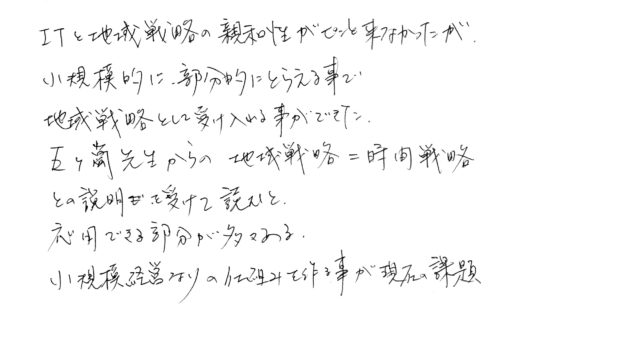 ITと地域戦略の親和性がピンと来なかったが、
小規模的に、部分的にとらえる事で
地域戦略として受け入れる事ができた。
五ヶ薗先生からの 地域戦略=時間戦略
との説明を受けて読むと、
応用できる部分が多々ある。
小規模経営なりの仕組みを作る事が現在の課題